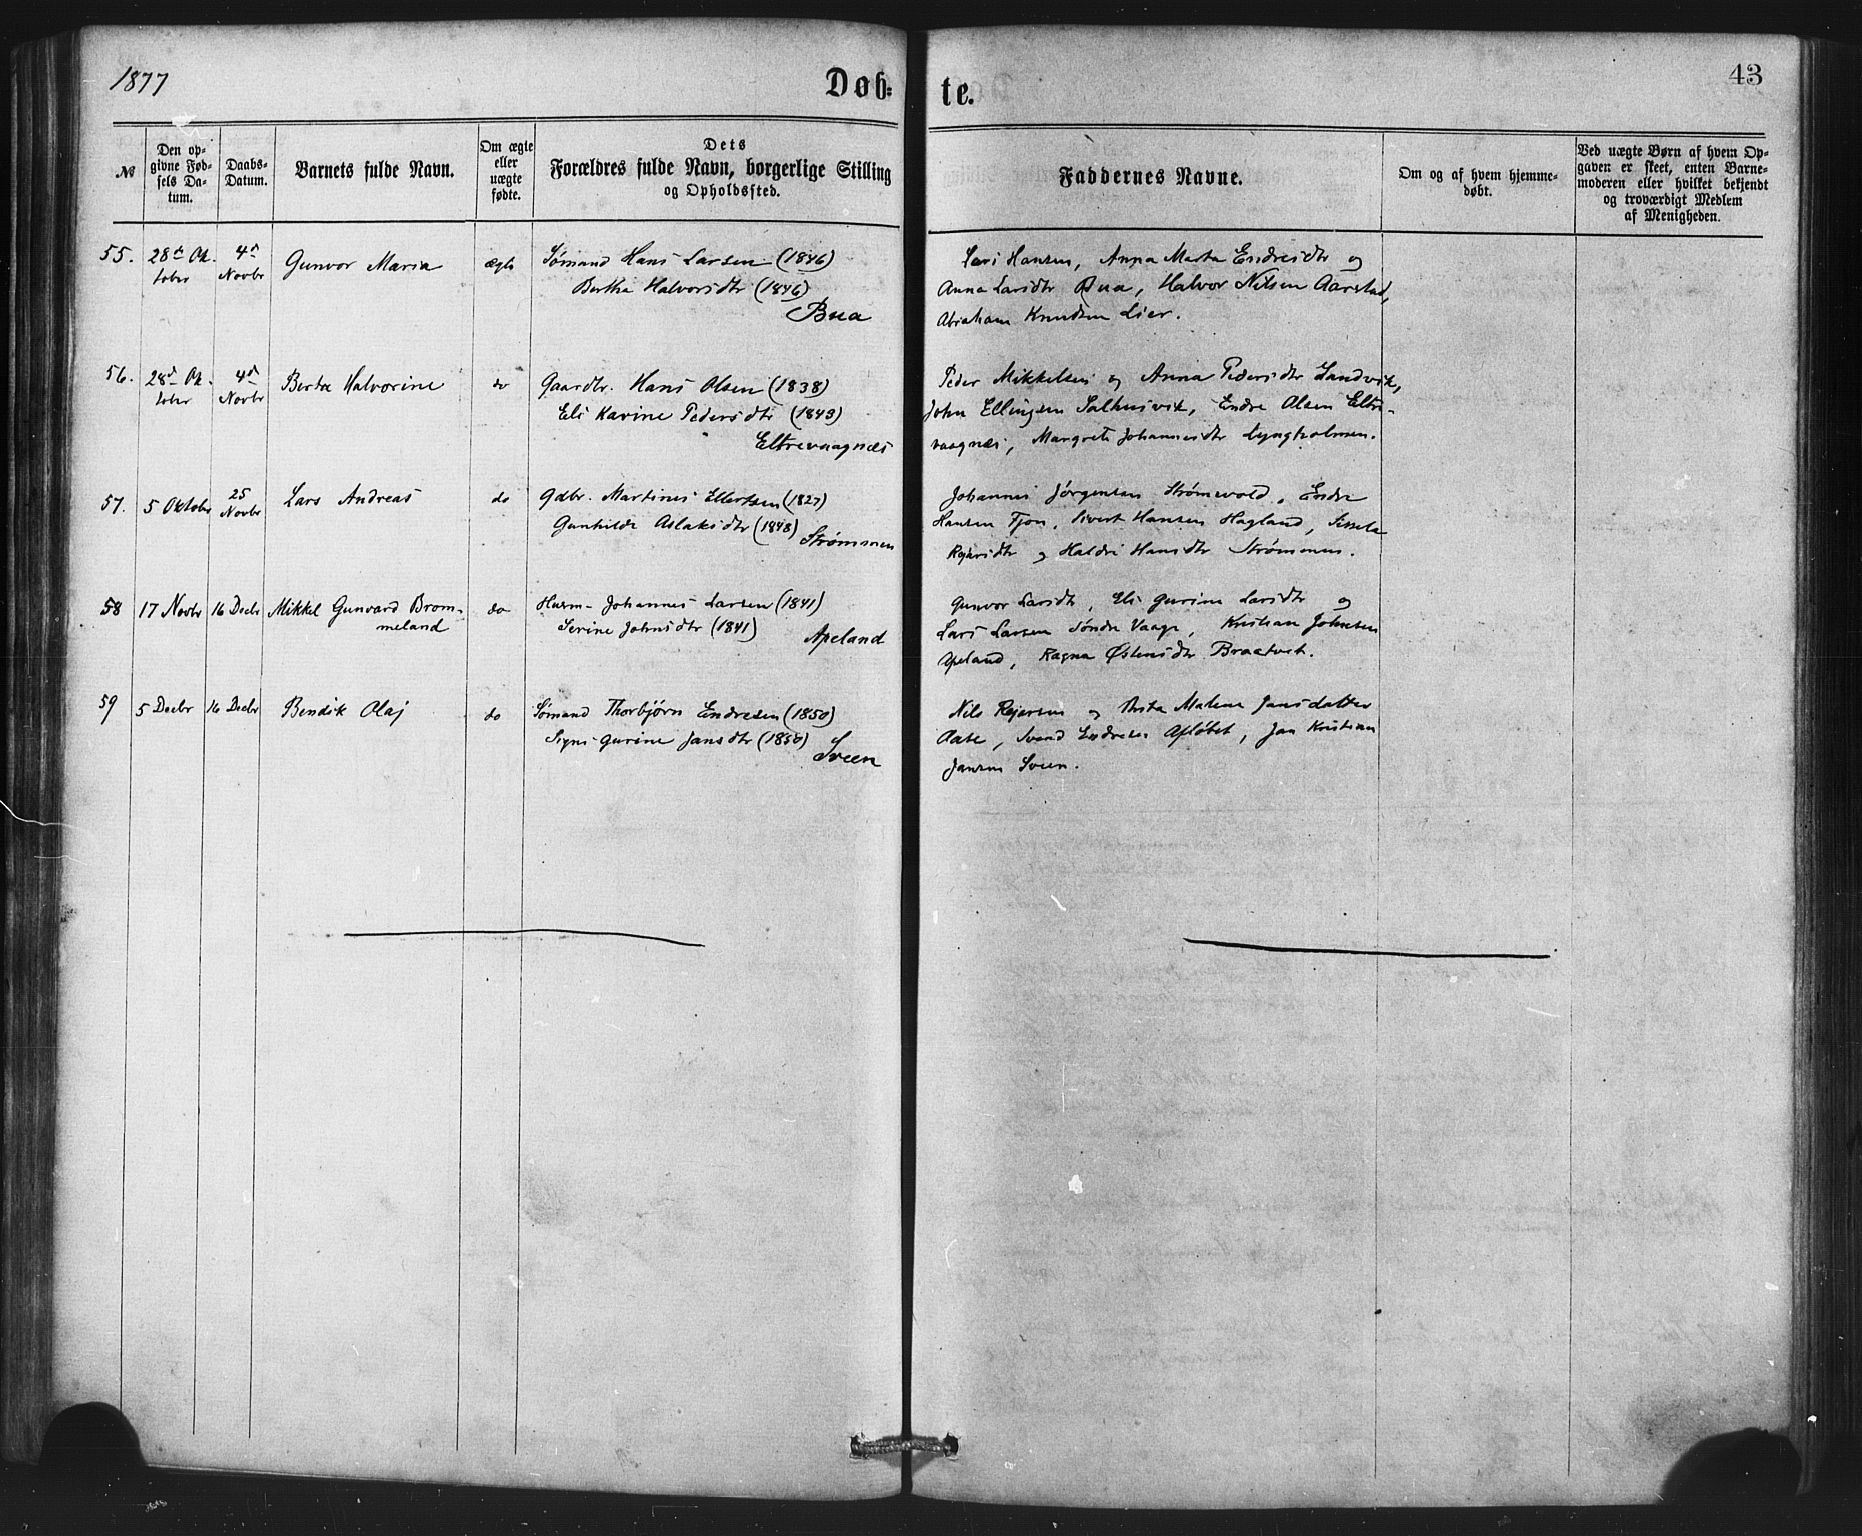 1877
Døb=
te.
43
№
Den op-
givne Fød-
sels Da-
tum.
Daabs-
Datum.
Barnets fulde Navn.
Om ægte
eller
uægte
fødte.
Dets
Forældres fulde Navn, borgerlige Stilling
og Opholdssted.
Faddernes Navne.
Om og af hvem hjemme-
døbt.
Ved uægte Børn af hvem Op-
gaven er skeet, enten Barne-
moderen eller hvilket bekjendt
og troværdigt Medlem
af Menigheden.
55.
28de Ok-
tober
4de
Novbr
Gunvor Maria
ægte
Sømand Hans Larsen (1846)
Bertha Halvorsdtr (1846)
Bua
Lars Hansen, Anna Marta Endresdtr og
Anna Larsdtr Bua, Halvor Nilsen Aarstad,
Abraham Knudsen Lier.
56.
28de Ok-
tober
4de
Novbr
Berta Halvorine
do
Gaardbr. Hans Olsen (1838)
Eli Karine Pedersdtr (1843)
Eltrevaagnæs
Peder Mikkelsen og Anna Pedersdtr Sandvik,
John Ellingsen Salhusvik, Endre Olsen Eltre-
vaagnæs, Margrete Johannesdtr Lyngholmen.
57.
5 Oktober
25
Novbr
Lars Andreas
do
Gdbr. Martines Ellertsen (1827)
Gunhilde Aslaksdtr (1848)
Strømmen
Johannes Jørgensen Strømevold, Endre
Hansen Tjon, Sivert Hansen Hagland, Sissela
Rejersdtr og Haldri Hansdtr Strømmen.
58
17 Novbr
16 Decbr
Mikkel Gunvard Brom-
meland
do
Husm- Johannes Larsen (1841)
Serine Johnsdtr (1841)
Apeland
Gunvor Larsdtr, Eli Gurine Larsdtr og
Lars Larsen Søndre Vaage, Kristian Johnsen
Apeland, Ragna Østensdtr Braatvet.
59
5 Decbr
16 Decbr
Bendik Olaj
do
Sømand Thorbjørn Endresen (1850)
Signe Gurine Jansdtr (1850)
Sveen
Nils Rejersen og Brita Malene Jansdatter
Aase, Svend Endresen Apløbet, Jan Kristian
Jansen Sveen.